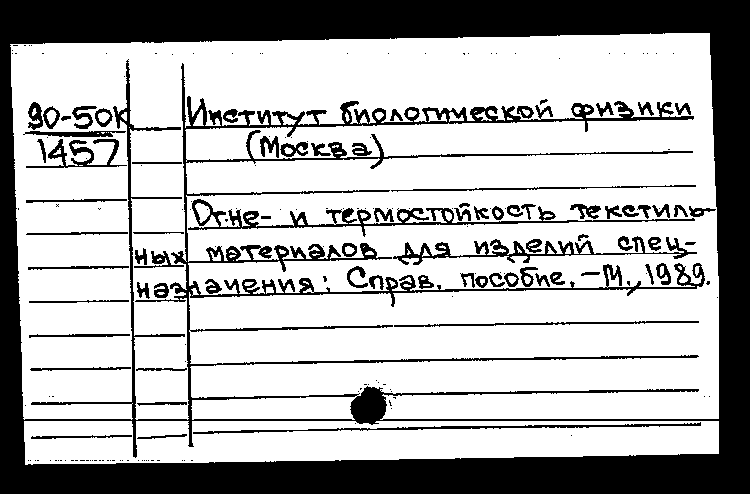 90-50к Институт биологической физики
1457 (Москва)
Огне- и термостойкость текстиль-
ных материалов для изделий спец-
назначения: Справ. пособие. – М., 1989.